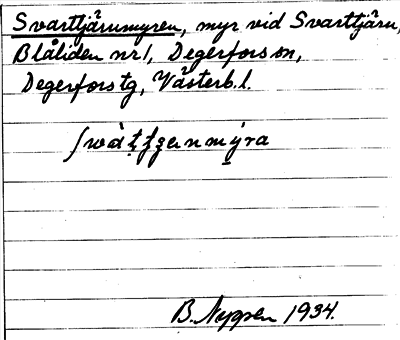 Svarttjärnmyren, myr vid Svarttjärn,
Blåliden nr 1, Degerfors sn,
Degerfors tg, Västerb. l.
B. Nygren 1934.